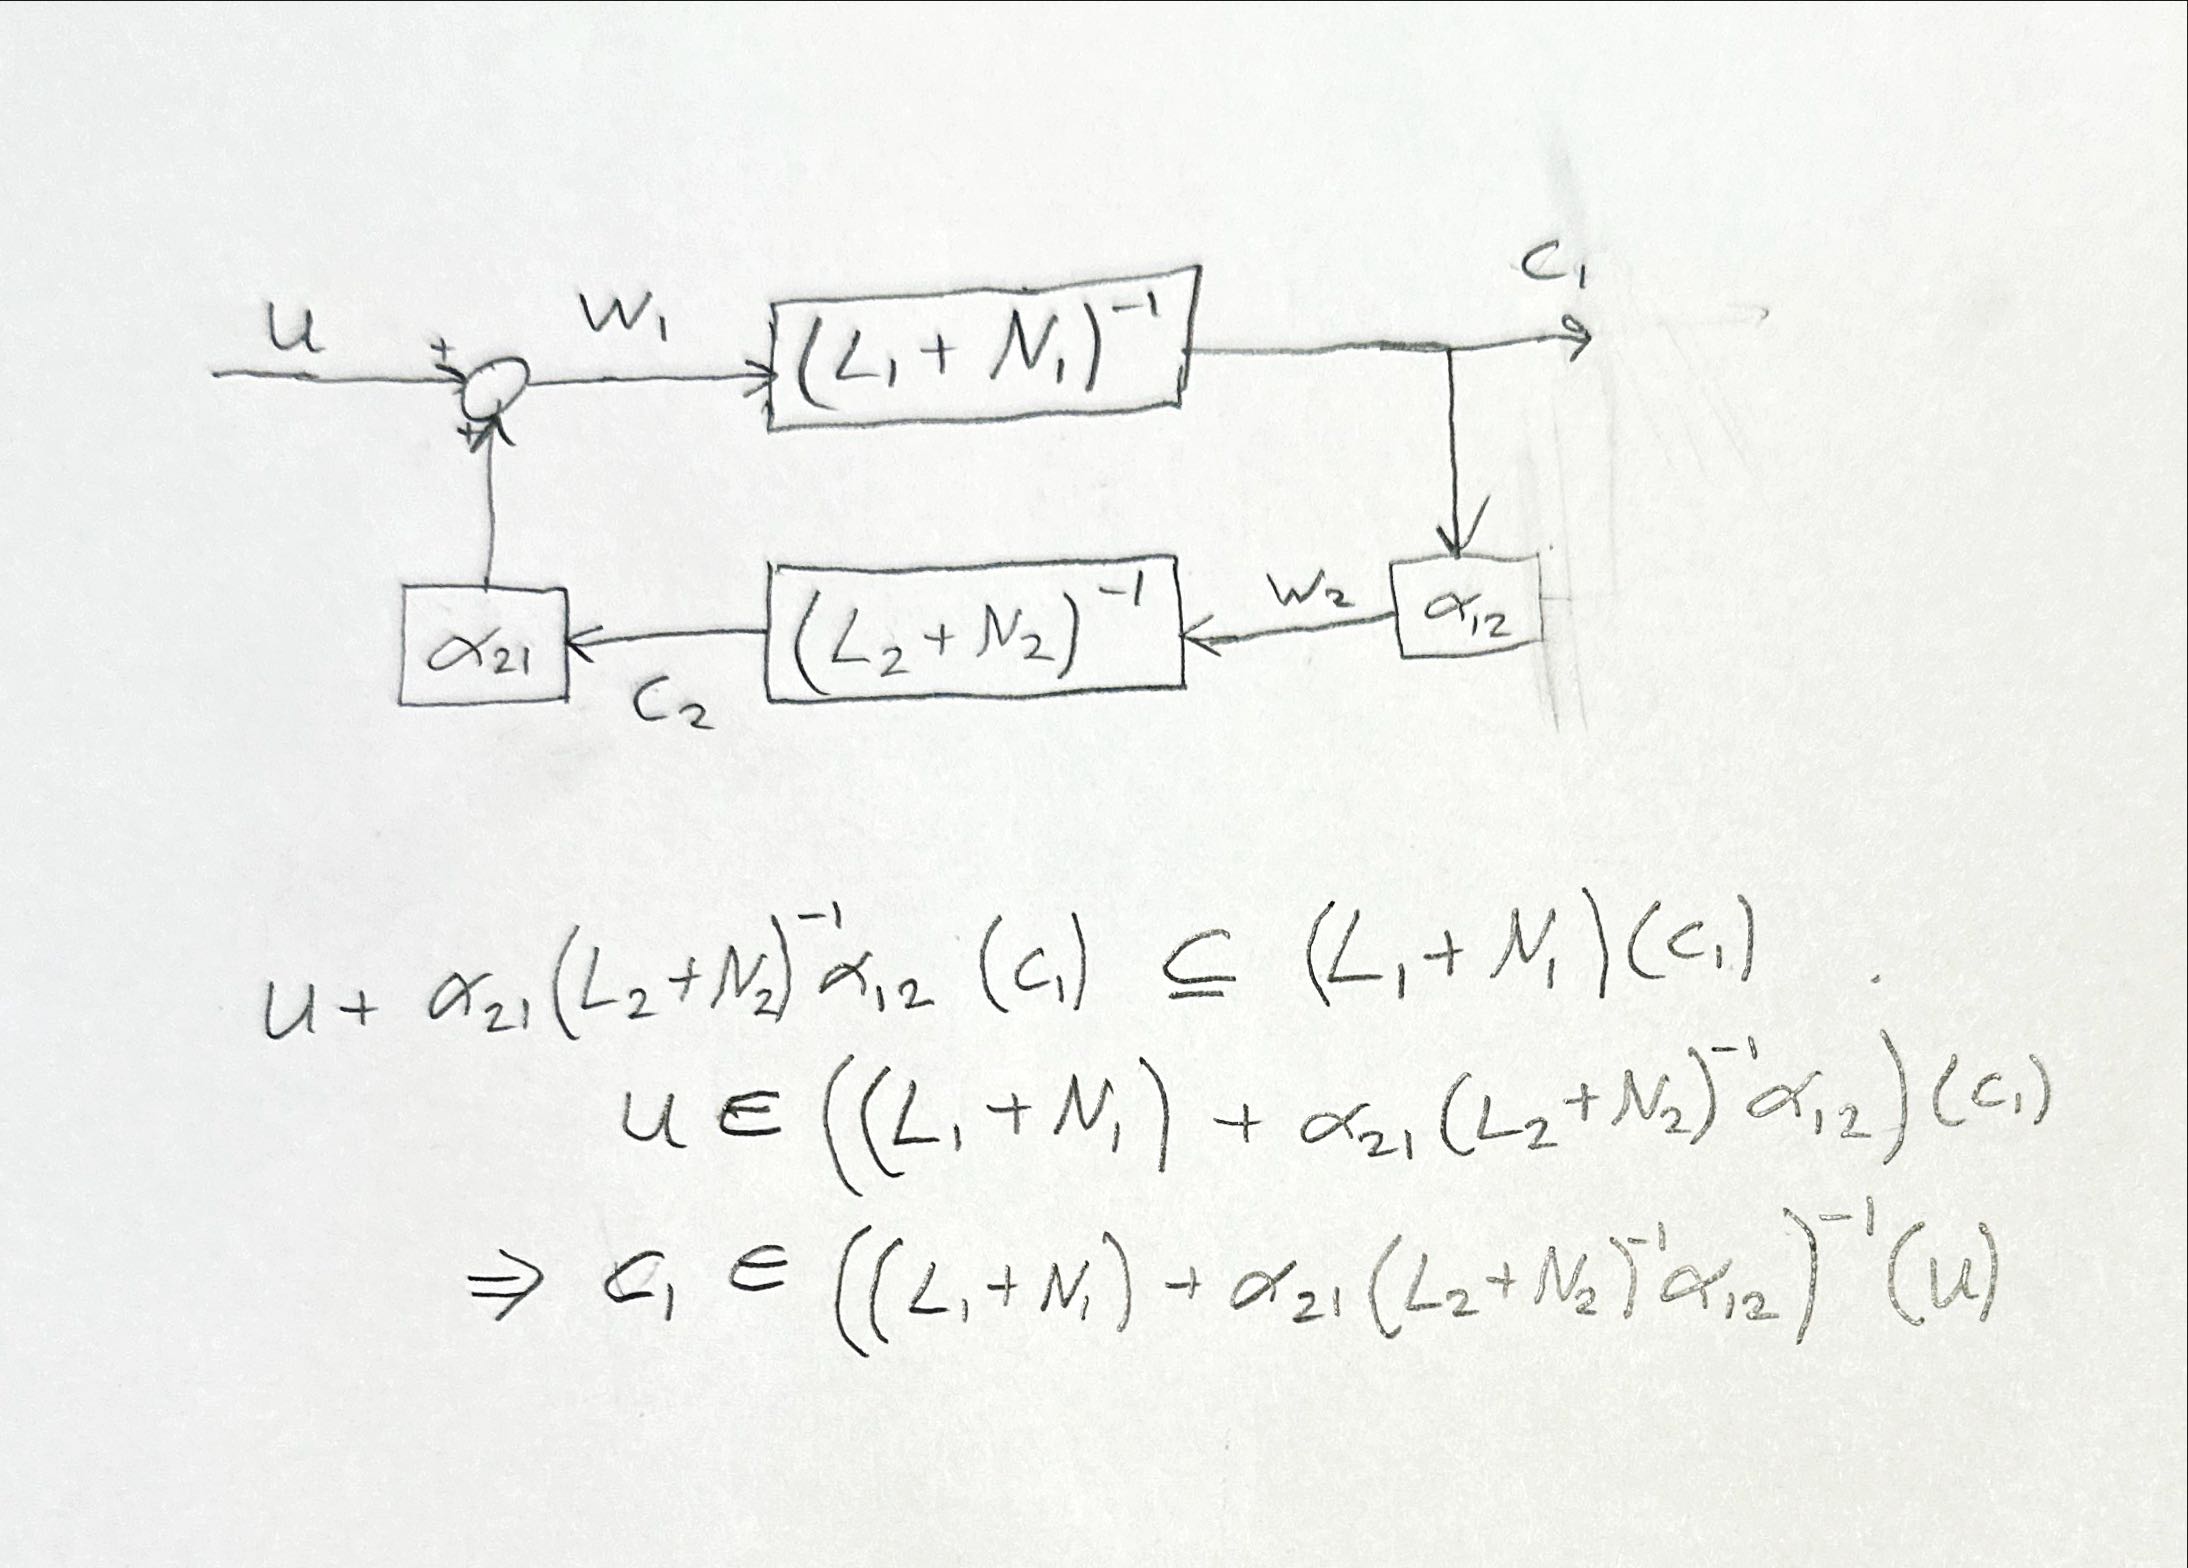 u + w₁ (L₁ + N₁)⁻¹ c₁
+
α₂₁ c₂ (L₂ + N₂)⁻¹ w₂ α₁₂
u + α₂₁(L₂+N₂)⁻¹α₁₂ (c₁) ⊆ (L₁ + N₁)(c₁)
u ∈ ((L₁ + N₁) + α₂₁(L₂+N₂)⁻¹α₁₂)(c₁)
⇒ c₁ ∈ ((L₁+N₁) + α₂₁(L₂+N₂)⁻¹α₁₂)⁻¹(u)